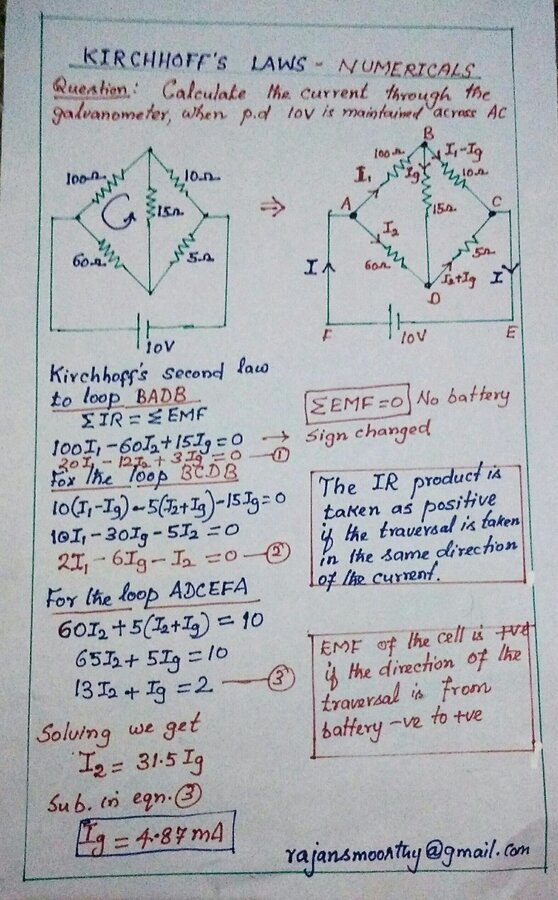 KIRCHHOFF'S LAWS - NUMERICALS
Question: Calculate the current through the
galvanometer, when p.d 10V is maintained across AC
100Ω
10Ω
15Ω
60Ω
5Ω
10V
⇒
B
100Ω
I₁
Ig
I₁-Ig
10Ω
A
15Ω
C
I₂
60Ω
5Ω
I₂+Ig
D
I
I
F
10V
E
Kirchhoff's second law
to loop BADB
ΣIR = ΣEMF
100I₁ - 60I₂ + 15Ig = 0 →
20I₁ - 12I₂ + 3Ig = 0 — ①
ΣEMF = 0 No battery
Sign changed
For the loop BCDB
10(I₁-Ig) - 5(I₂+Ig) - 15Ig = 0
10I₁ - 30Ig - 5I₂ = 0
2I₁ - 6Ig - I₂ = 0 — ②
The IR product is
taken as positive
if the traversal is taken
in the same direction
of the current.
For the loop ADCEFA
60I₂ + 5(I₂+Ig) = 10
65I₂ + 5Ig = 10
13I₂ + Ig = 2 — ③
EMF of the cell is +ve
if the direction of the
traversal is from
battery -ve to +ve
Solving we get
I₂ = 31.5 Ig
Sub. in eqn. ③
Ig = 4.87 mA
rajansmoorthy@gmail.com